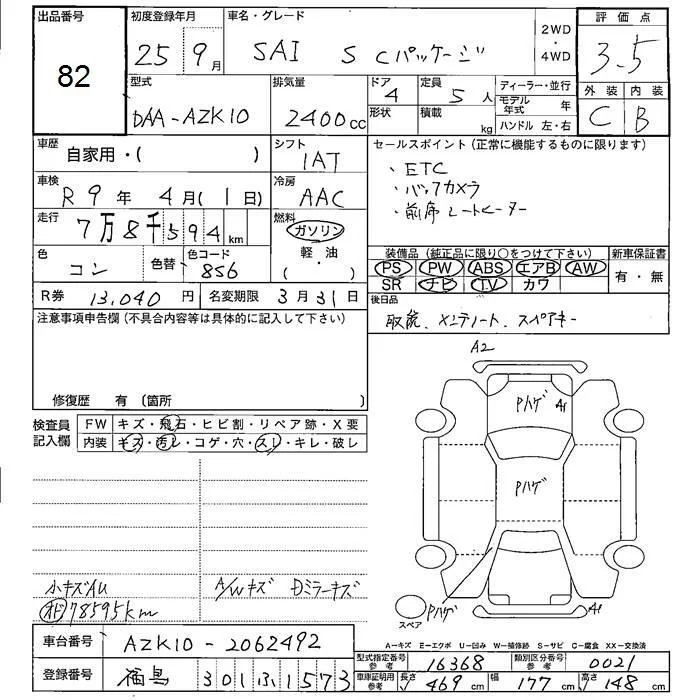 出品番号
82
初度登録年月
25年9月
車名・グレード
SAI S Cパッケージ
2WD
・
4WD
評価点
3.5
外装 内装
C B
型式
DAA-AZK10
排気量
2400cc
ドア
4
形状
定員
5人
積載
kg
ディーラー・並行
モデル年式 年
ハンドル 左・右
車歴
自家用・( )
シフト
IAT
セールスポイント(正常に機能するものに限ります)
・ETC
・バックカメラ
・前席シートヒーター
車検
R9年4月(1日)
冷房
AAC
走行
7万8千594km
燃料
ガソリン
軽・油
( )
色
コン
色替
色コード
856
装備品(純正品に限り○をつけて下さい)
PS PW ABS エアB AW
SR ナビ TV カワ
新車保証書
有・無
R券 13,040円
名変期限 3月31日
後日品
取説、メンテノート、スペアキー
注意事項申告欄(不具合内容等は具体的に記入して下さい)
修復歴 有(箇所 )
検査員記入欄
FW キズ・飛石・ヒビ割・リペア跡・X要
内装 キズ・汚レ・コゲ・穴・スレ・キレ・破レ
小キズイU
A/Wキズ
Dミラーキズ
オド78595km
A2
Pハゲ
A1
Pハゲ
Pハゲ
A1
スペア
A-キズ E-エクボ U-凹み W-補修跡 S-サビ C-腐食 XX-交換済
車台番号 AZK10-2062492
登録番号 福島 301ふ1573
型式指定番号 参考 16368
類別区分番号 参考 0021
車庫証明用 参考 長さ 469cm 幅 177cm 高さ 148cm